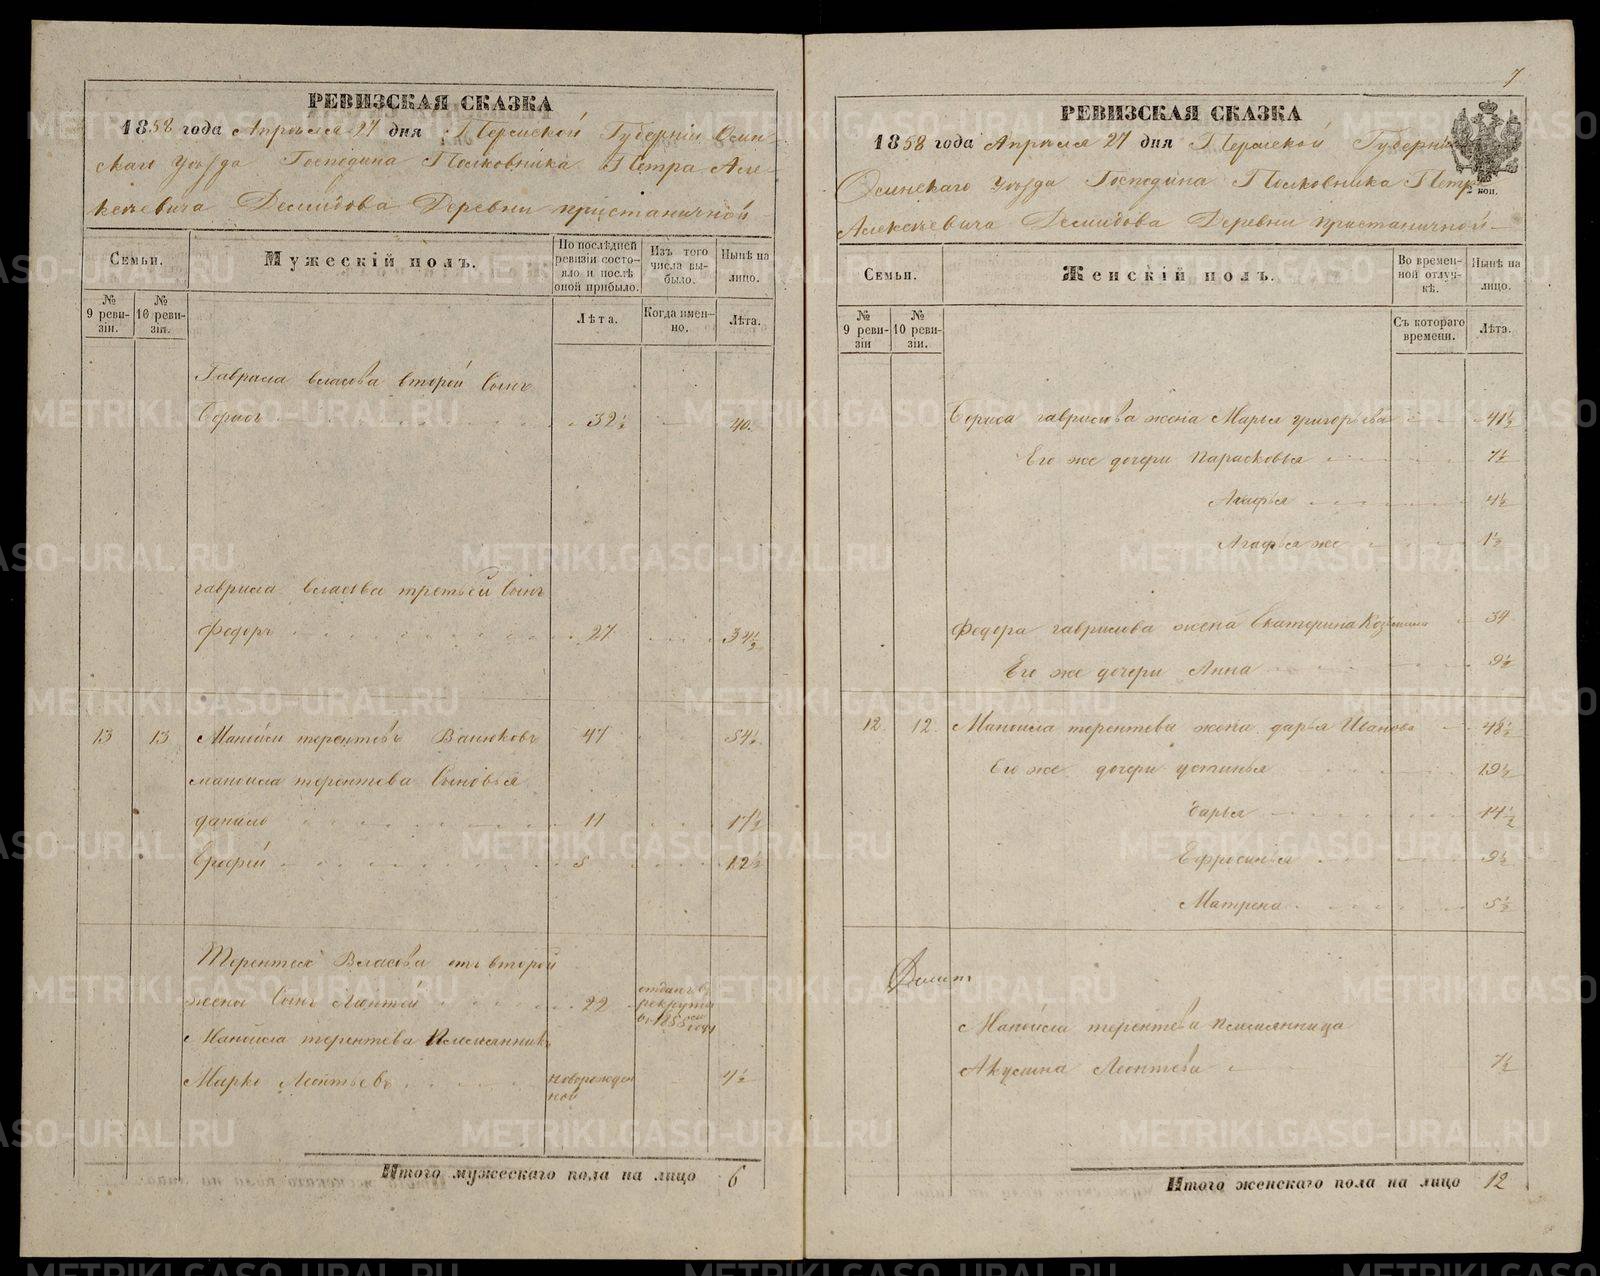 РЕВИЗСКАЯ СКАЗКА
1858 года Апреля 27 дня Пермской Губернiи Осин-
скаго уѣзда Господина Полковника Петра Але-
ксѣевича Демидова Деревни пристаничной
Семьи.
Мужескiй полъ.
По послѣдней ревизiи состо-
яло и послѣ
оной прибыло.
Изъ того
числа вы-
было.
Нынѣ на
лицо.
№
9 реви-
зiи.
№
10 реви-
зiи.
Лѣта.
Когда имен-
но.
Лѣта.
Гаврила власова второй Сынъ
Борисъ 32½ 40.
гаврила власова третьей Сынъ
Федоръ 27 34½
13 13 Манойли терентевъ Ванюковъ 47 54½
манойла терентева Сыновья
данило 11 17½
Ерофей 5 12½
Терентея Власова отъ второй
жены Сынъ Леонтей 22 отданъ въ
рекруты
въ 1855 году
Манойла терентева Племянникъ
Марко Леонтьевъ новорожден
ной 4½
Итого мужескаго пола на лицо 6
7
РЕВИЗСКАЯ СКАЗКА
1858 года Апреля 27 дня Пермской Губернiи
Осинскаго уѣзда Господина Полковника Петра
Алексѣевича Демидова Деревни пристаничной
коп.
Семьи.
Женскiй полъ.
Во времен-
ной отлуч-
кѣ.
Нынѣ на
лицо.
№
9 реви-
зiи
№
10 реви-
зiи.
Съ котораго
времени.
Лѣта.
Бориса гаврилова жена Марья григорьева 41½
Его же дочери Парасковья 7½
Агафья 4½
Агафья же 1½
Федора гаврилова жена Екатерина 34
Его же дочери Анна 9½
12 12 Манойла терентева жена дарья Иванова 48½
Его же дочери устинья 19½
Дарья 14½
Ефросинья 9½
Матрена 5½
Манойла терентева племянница
Акулина Леонтева 7½
Итого женскаго пола на лицо 12
METRIKI.GASO-URAL.RU